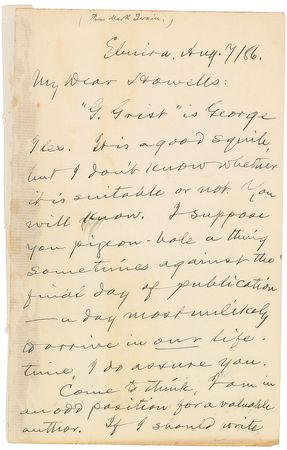 (From Mark Twain.)
Elmira, Aug. 7/86.
My Dear Howells:
"G. Grist" is George
Ilex. It is a good squib,
but I don't know whether
it is suitable or not. You
will know. I suppose
you pigeon-hole a thing
sometimes against the
final day of publication
— a day most unlikely
to arrive in our life-
time, I do assure you.
Come to think, I am in
an odd position for a valuable
author. If I should write